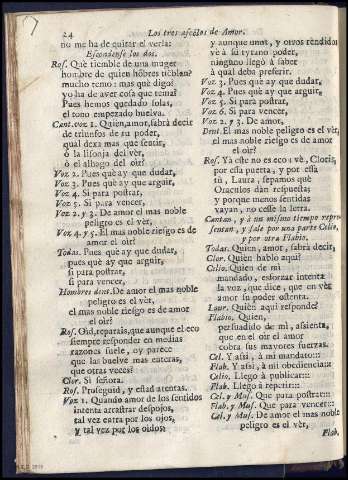 24 Los tres afectos de Amor.
no me ha de quitar el verla:
Escondense los dos.
Ros. Què tiemble de una muger
hombre de quien hòbres tieblan?
mucho temo: mas què digo?
yo ha de aver cosa que tema?
Pues hemos quedado solas,
el tono empezado buelva.
Cant. voz 1. Quien, amor, sabrà decir
de triunfos de su poder,
qual dexa mas que sentir,
ò la lisonja del vèr,
ò el alhago del oir?
Voz 2. Pues què ay que dudar,
Voz 3. Pues què ay que arguir,
Voz 4. Si para postrar,
Voz 5. Si para vencer,
Voz 2. y 3. De amor el mas noble
peligro es el vèr,
Voz 4. y 5. El mas noble riesgo es de
amor el oir?
Todas. Pues què ay que dudar,
pues què ay que arguir,
si para postrar,
si para vencer,
Hombres dent. De amor el mas noble
peligro es el vèr,
el mas noble riesgo es de amor
el oir?
Ros. Oid, reparais, que aunque el eco
siempre responder en medias
razones suele, oy parece
que las buelve mas enteras,
que otras veces?
Clor. Si señora.
Ros. Proseguid, y estad atentas.
Voz 1. Quando amor de los sentidos
intenta arrastrar despojos,
tal vez entra por los ojos,
y tal vez por los oidos:
y aunque unos, y otros rendidos
vè à su tyrano poder,
ninguno llegò à saber
à qual deba preferir.
Voz 3. Pues què ay que dudar,
Voz 4. Pues què ay que arguir,
Voz 5. Si para postrar,
Voz 6. Si para vencer,
Voz 2. y 3. De amor,
Dent. El mas noble peligro es el vèr,
el mas noble riesgo es de amor
el oir?
Ros. Yà este no es eco: vè, Cloris,
por essa puerta, y por essa
tù, Laura, sepamos què
Oraculos dàn respuestas
y porque menos sentidas
vayan, no cesse la letra.
Cantan, y à un mismo tiempo repre-
sentan, y sale por una parte Celio,
y por otra Flabio.
Todas. Quien, amor, sabrà decir,
Clor. Quien hablo aqui?
Celio. Quien de mi
mandado, esforzar intenta
la voz, que dice, que en vèr
amor su poder ostenta.
Laur. Quien aqui responde?
Flabio. Quien,
persuadido de mi, assienta,
que en el oir el amor
cobra sus mayores fuerzas.
Cel. Y assi, à mi mandato:::
Flab. Y assi, à mi obediencia::
Celio. Llego à publicar:::
Flab. Llego à repetir:::
Cel. y Mus. Que para postrar:::
Flab. y Mus. Que para vencer:::
Cel. y Mus. De amor el mas noble
peligro es el vèr,
Flab.